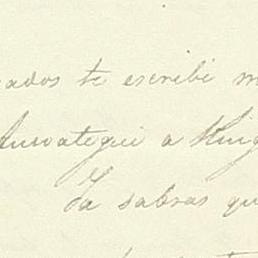 ados te escribi m
Ansoategui a King
Ya sabras qu